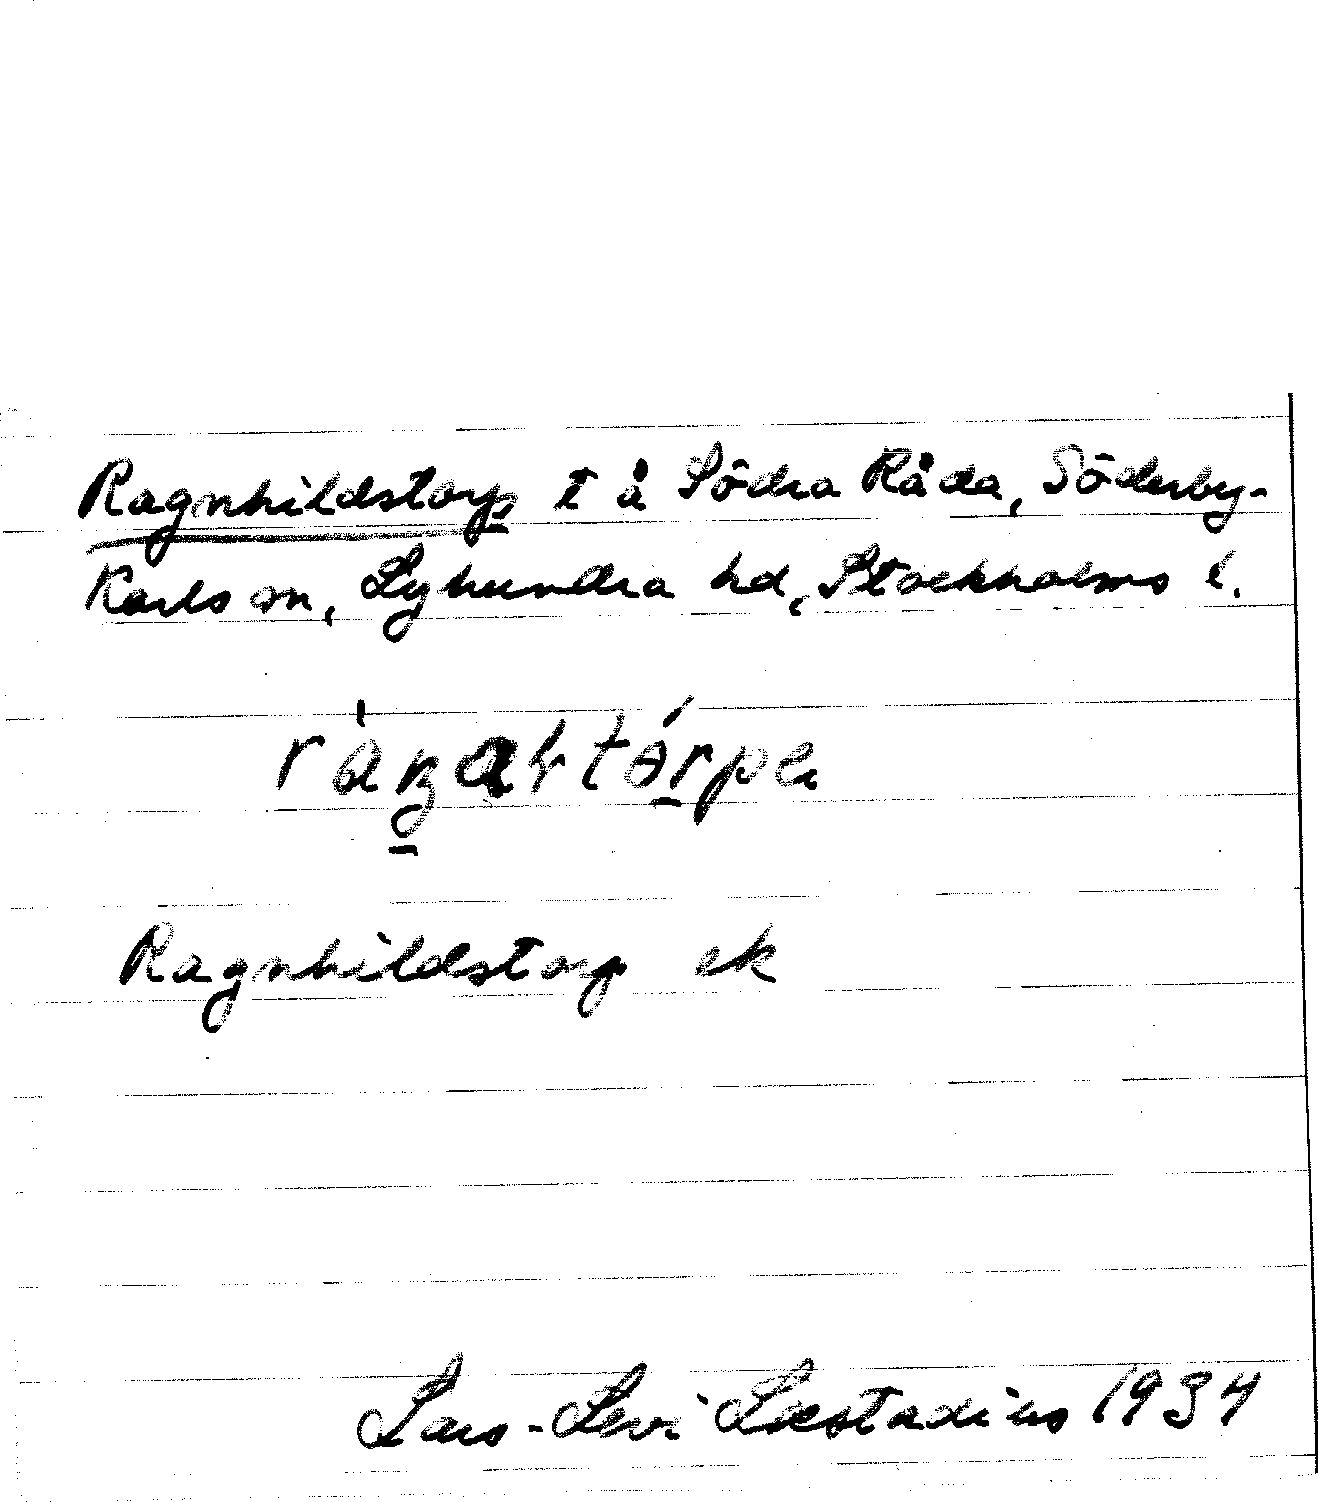 Ragnhildstorp t å Södra Råda, Söderby-
Karls sn, Lyhundra hd, Stockholms l.
Ragnhildstorp ek
Lars-Levi Læstadius 1934